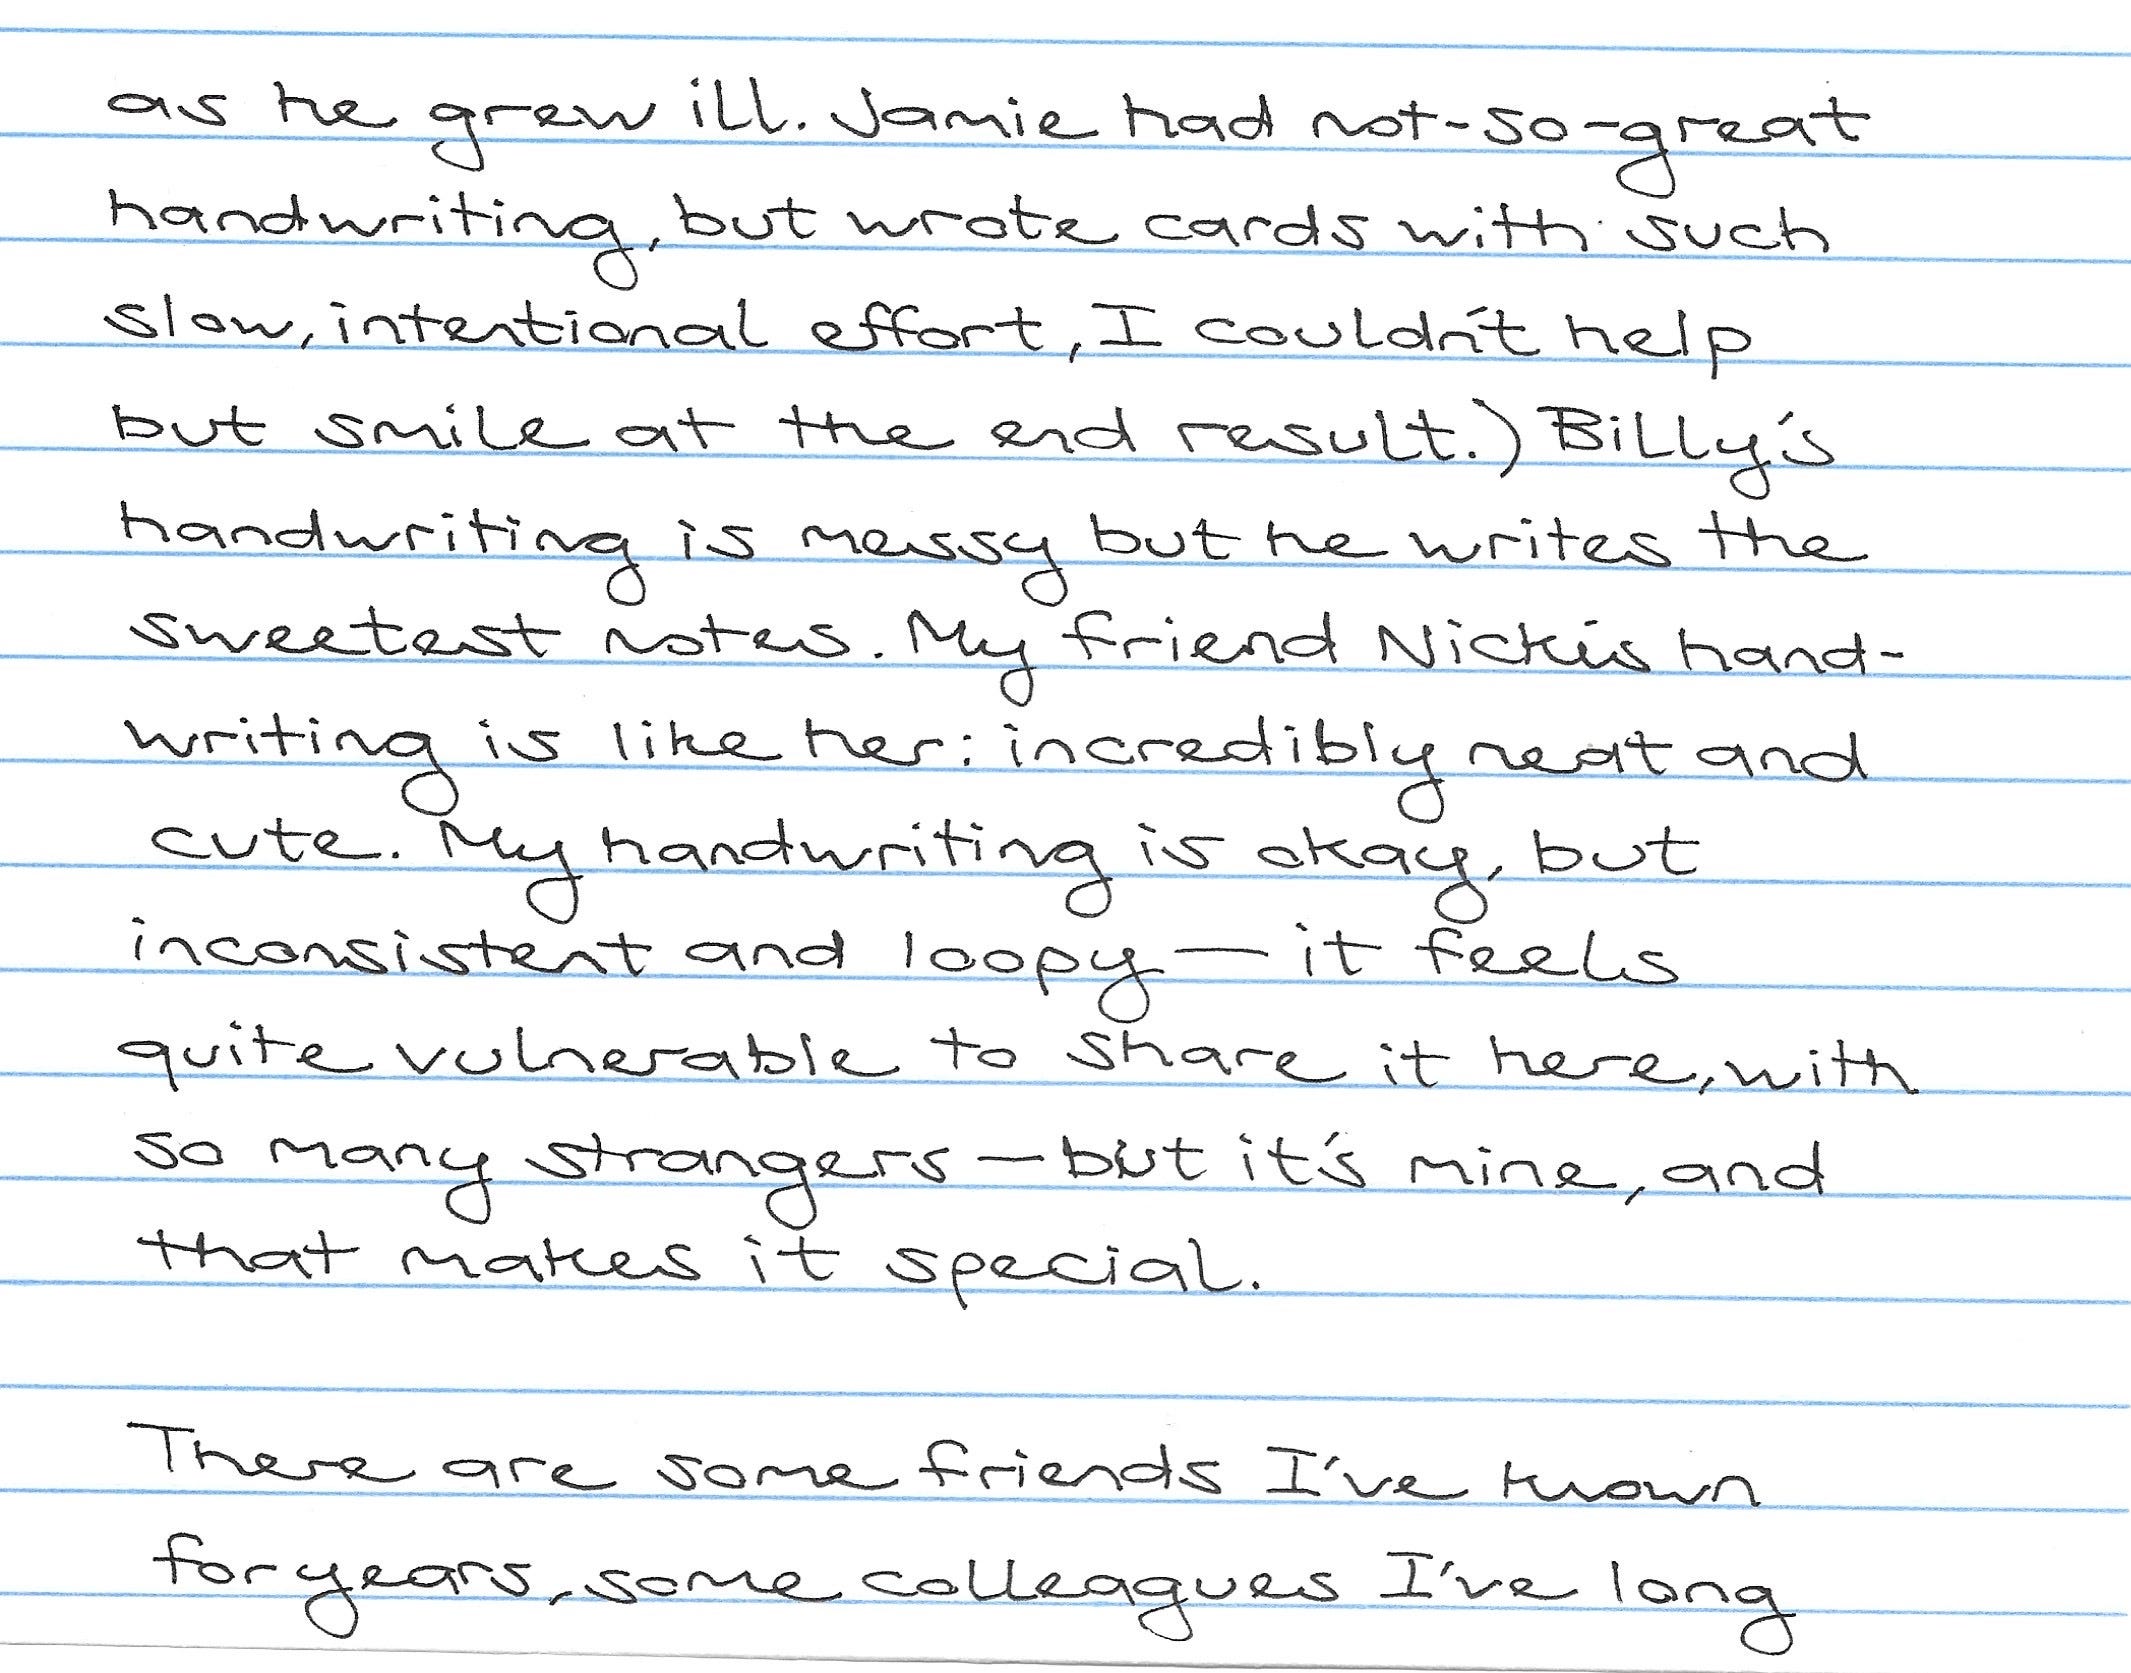 as he grew ill. Jamie had not-so-great
handwriting, but wrote cards with such
slow, intentional effort, I couldn't help
but smile at the end result.) Billy's
handwriting is messy but he writes the
sweetest notes. My friend Nicki's hand-
writing is like her: incredibly neat and
cute. My handwriting is okay, but
inconsistent and loopy — it feels
quite vulnerable to share it here, with
so many strangers — but it's mine, and
that makes it special.
There are some friends I've known
for years, some colleagues I've long